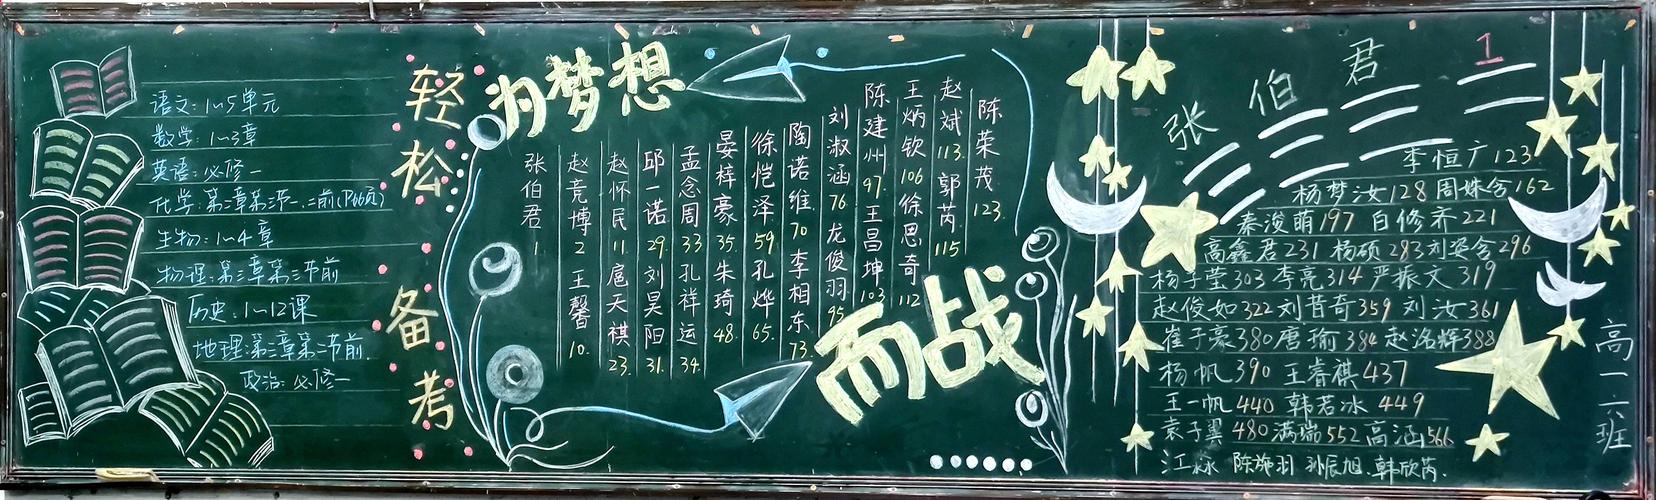 语文:1~5单元
数学:1~3章
英语:必修一
化学:第二章第二节前(P66页)
生物:1~4章
物理:第三章第三节前
历史:1~12课
地理:第三章第二节前
政治:必修一
轻松备考
为梦想
而战
张伯君1.
赵竞博2 王馨10.
赵怀民11 扈天祺23.
邱一诺29. 刘昊阳31.
孟念周33 孔祥运34
晏梓豪35. 朱琦48.
徐恺泽59 孔烨65.
陶诺维70 李相东73.
刘淑涵76 龙俊羽95
陈建州97. 王昌坤103
王炳钦106 徐思奇112
赵斌113. 郭芮115
陈荣茂123.
张伯君 1
李恒广123.
杨梦汝128 周姝含162
秦浚萌197 白修齐221
高鑫君231 杨硕283 刘姿含296
杨子莹303 李亮314 严振文319
赵俊如322 刘昔奇359 刘汝361
崔子豪380 唐瑜384 赵洺辉388
杨帆390 王睿祺437
王一帆440 韩若冰449
袁子翼480 满瑞552 高涵566
江淼 陈施羽 孙辰旭 韩欣芮.
高一·六班